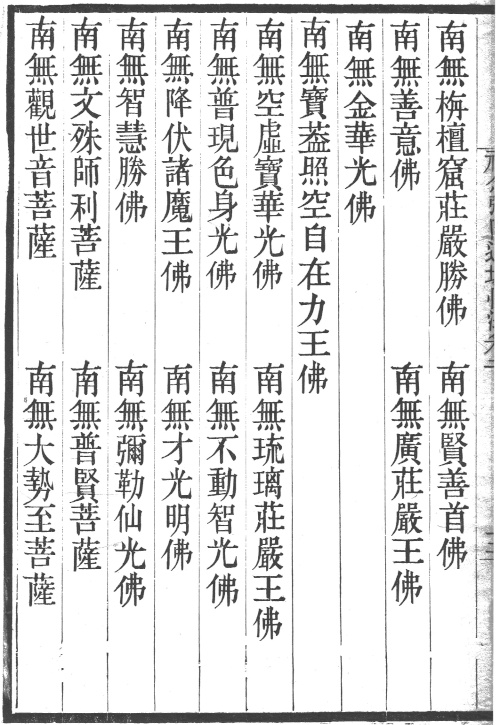 南無栴檀窟莊嚴勝佛　南無賢善首佛
南無善意佛　南無廣莊嚴王佛
南無金華光佛
南無寶葢照空自在力王佛
南無空虛寶華光佛　南無琉璃莊嚴王佛
南無普現色身光佛　南無不動智光佛
南無降伏諸魔王佛　南無才光明佛
南無智慧勝佛　南無彌勒仙光佛
南無文殊師利菩薩　南無普賢菩薩
南無觀世音菩薩　南無大勢至菩薩